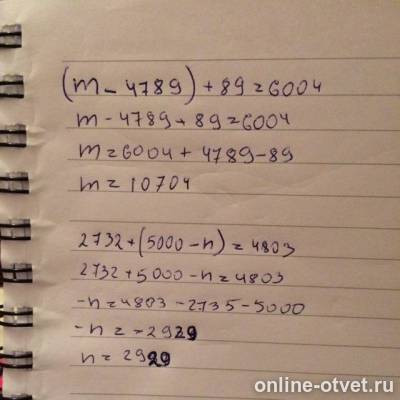 (m - 4789) + 89 = 6004
m - 4789 + 89 = 6004
m = 6004 + 4789 - 89
m = 10704
2732 + (5000 - n) = 4803
2732 + 5000 - n = 4803
-n = 4803 - 2735 - 5000
-n = -2929
n = 2929
online-otvet.ru